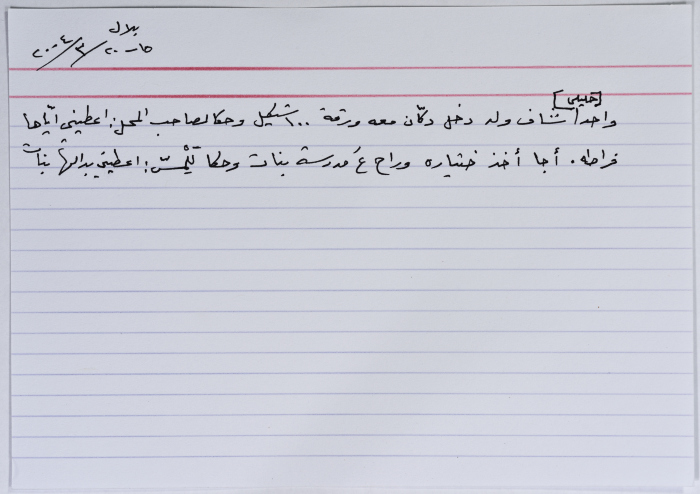 بلال
٢٠٠٤/٣/٢٠-١٥
[خليلي]
واحد شاف ولد دخل دكّان معه ورقة ١٠٠ شيكل وحكا لصاحب المحل: اعطيني ايّاها
فراطه. أجا أخذ ختياره وراح عَ مدرسة بنات وحكا للمِسّ: اعطيني بدالها بنات